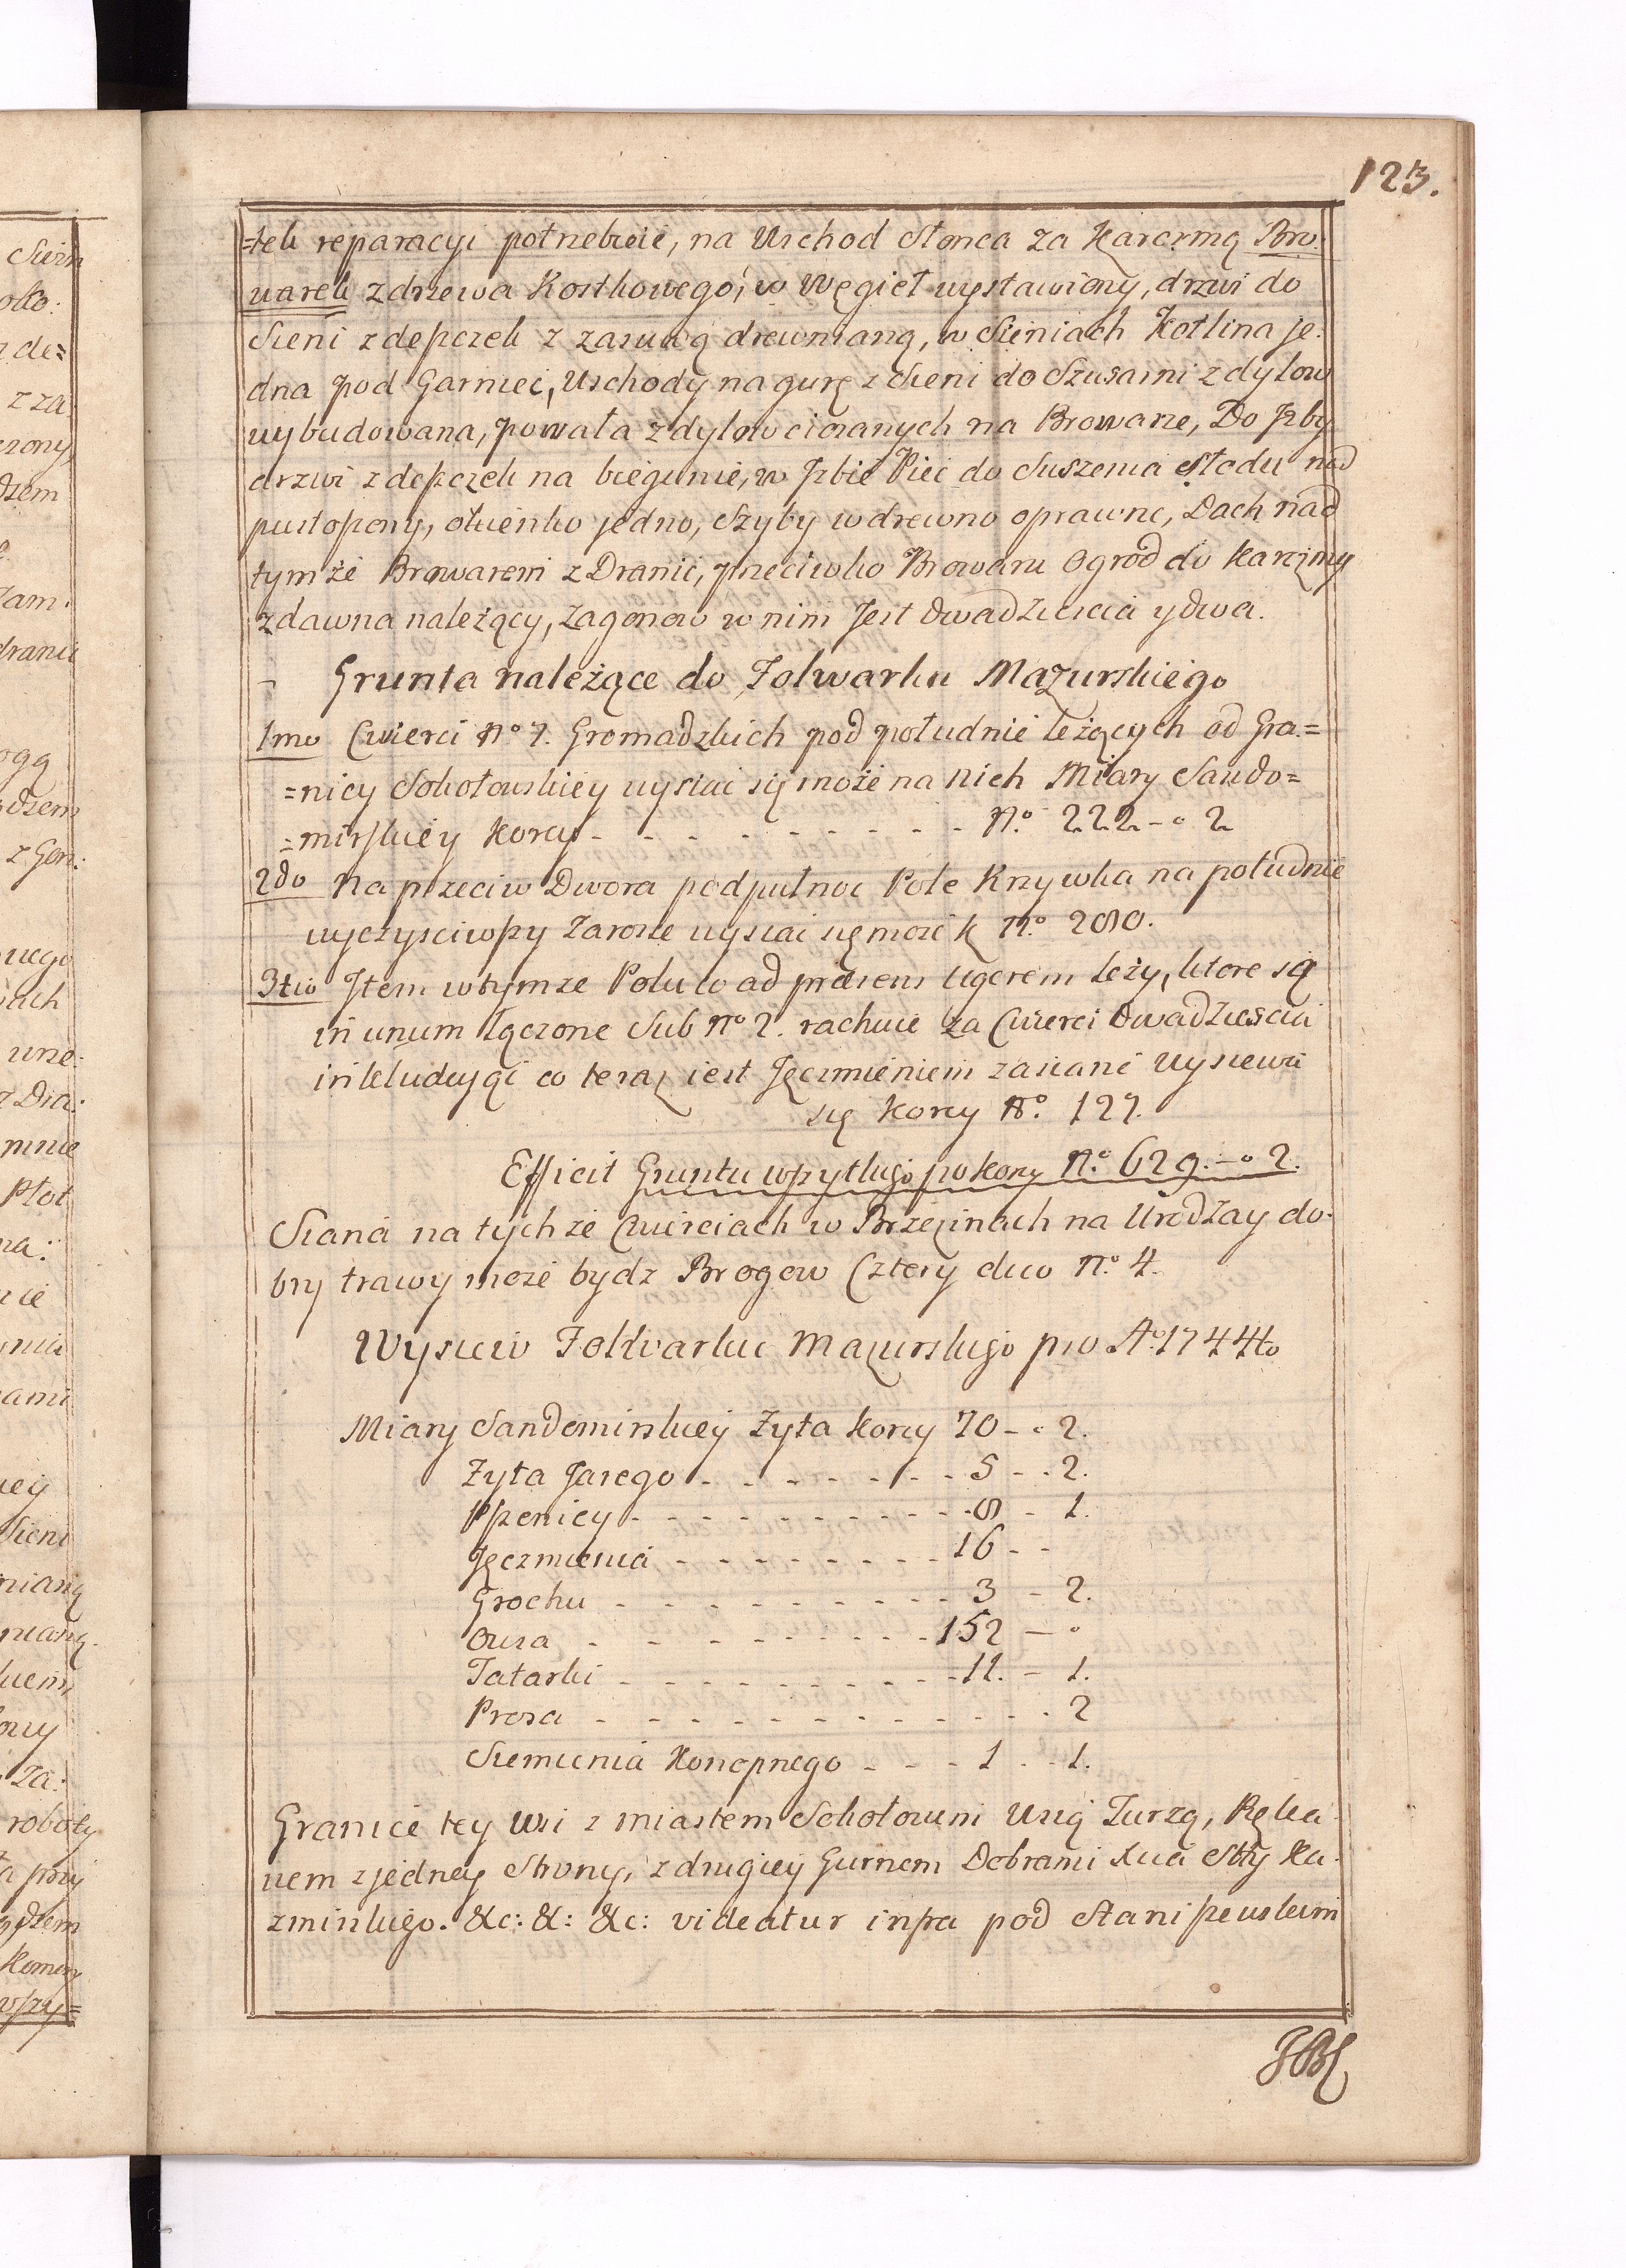 123.
=tek reparacyi potrzebuie, na Wschod Słonca za Karczmą Bro:
warek z drzewa Kostkowego, w Węgieł wystawiony, drzwi do
Sieni z depczek z zasuwą drewnianą, w Sieniach Kotlina je:
dna pod Garniec, Wschody na gurę z Sieni do Szusarni z dylow
wybudowana, powała z dylow ciosanych na Browarze, Do Jzby
drzwi z depczek na biegunie, w Jzbie Piec do Suszenia Słodu nad
pustoszony, okienko jedno, Szyby w drewno oprawne, Dach nad
tymże Browarem z Dranic, przeciwko Browaru Ogrod do Karczmy
zdawna należący, Zagonow w nim Jest Dwadziescia y dwa.
Grunta należące do Folwarku Mazurskiego
1mo Cwierci No 7. Gromadzkich pod południe leżących od Gra:=
=nicy Sokołowskiey wysiac się może na nich Miary Sando=
=mirskiey Korcy - - - - - - - - No. 222 - o 2
2do Na przeciw Dwora pod pułnoc Pole Krzywka na południe
wyczysciwszy Zarosle wysiac się może k No. 280.
3tio Jtem w tymze Polu co ad præsens Ugorem leży, ktore są
in unum łączone Sub No 2. rachuie za Cwierci Dwadziescia
inkludując co teraz iest Jęczmieniem zasiane wysiewa
się Korcy No. 127.
Efficit Gruntu wszytkiego po Korcy No. 629. - o 2.
Siana na tychże Cwierciach w Brzezinach na Urodzay do:
bry trawy może bydz Brogow Cztery dico No. 4.
Wysiew Folwarku Mazurskiego pro Ao. 1744to
Miary Sandomirskiey Zyta Korcy 70 - o 2.
Zyta Jarego - - - - - - - 5 - . 2.
Pszenicy - - - - - - - - - 8 - 1.
Jęczmienia - - - - - - - - 16 - -
Grochu - - - - - - - - - 3 - 2.
Owsa - - - - - - - - - 152 - o
Tatarki - - - - - - - - - 11. - 1.
Prosa - - - - - - - - - - - 2
Siemienia Konopnego - - - 1 . . 1.
Granice tey Wsi z miastem Sokołowem Wsią Turzą, Ręka:
wem z jedney Strony, z drugiey Gurnem Dobrami Xcia Stty Ka:
zmirskiego. &c: &: &c: videatur infra pod Staniszewskim